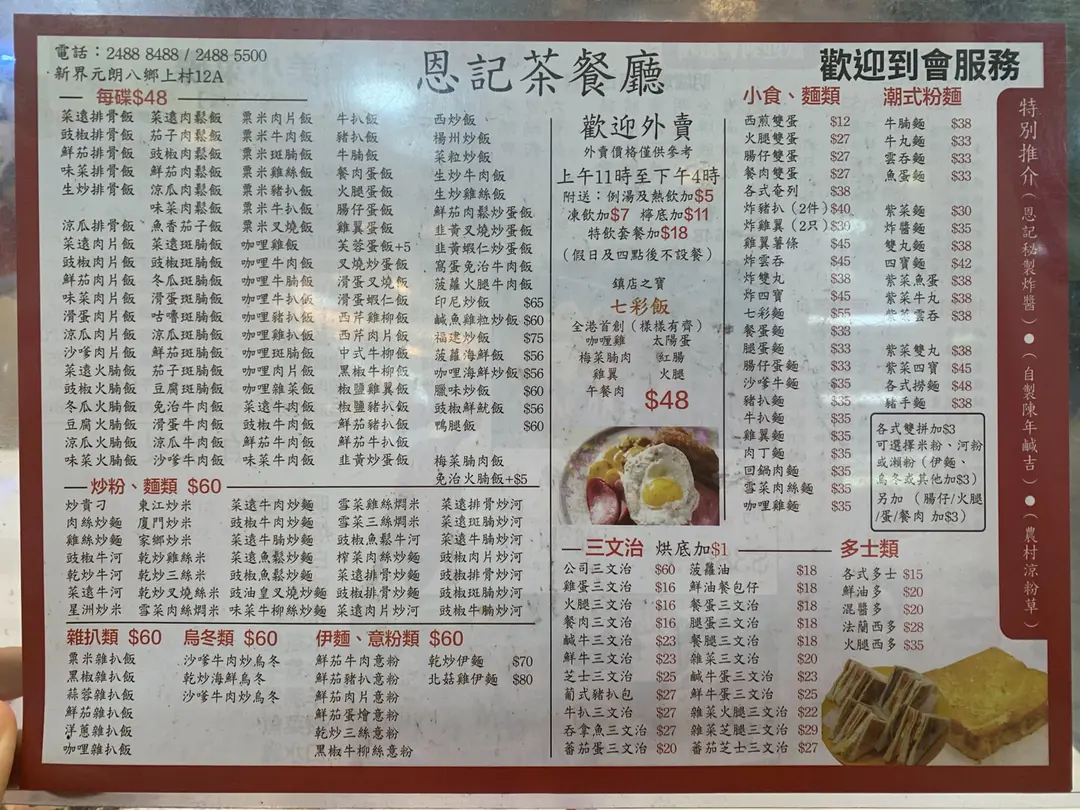 電話：2488 8488 / 2488 5500
新界元朗八鄉上村12A
恩記茶餐廳
歡迎到會服務
每碟$48
菜遠排骨飯
豉椒排骨飯
鮮茄排骨飯
味菜排骨飯
生炒排骨飯
涼瓜排骨飯
菜遠肉片飯
豉椒肉片飯
鮮茄肉片飯
味菜肉片飯
滑蛋肉片飯
涼瓜肉片飯
沙嗲肉片飯
菜遠火腩飯
豉椒火腩飯
冬瓜火腩飯
豆腐火腩飯
涼瓜火腩飯
味菜火腩飯
菜遠肉鬆飯
茄子肉鬆飯
豉椒肉鬆飯
鮮茄肉鬆飯
涼瓜肉鬆飯
味菜肉鬆飯
魚香茄子飯
菜遠斑腩飯
豉椒斑腩飯
冬瓜斑腩飯
滑蛋斑腩飯
咕嚕斑腩飯
涼瓜斑腩飯
鮮茄斑腩飯
茄子斑腩飯
豆腐斑腩飯
免治牛肉飯
滑蛋牛肉飯
涼瓜牛肉飯
沙嗲牛肉飯
粟米肉片飯
粟米牛肉飯
粟米斑腩飯
粟米雞絲飯
粟米豬扒飯
粟米牛扒飯
粟米叉燒飯
咖哩雞飯
咖哩牛肉飯
咖哩牛腩飯
咖哩牛扒飯
咖哩豬扒飯
咖哩雞扒飯
咖哩斑腩飯
咖哩肉片飯
咖哩雜菜飯
菜遠牛肉飯
豉椒牛肉飯
鮮茄牛肉飯
味菜牛肉飯
牛扒飯
豬扒飯
牛腩飯
餐肉蛋飯
火腿蛋飯
腸仔蛋飯
雞翼蛋飯
芙蓉蛋飯+5
叉燒炒蛋飯
滑蛋叉燒飯
滑蛋蝦仁飯
西芹雞柳飯
西芹肉片飯
中式牛柳飯
黑椒牛柳飯
椒鹽雞翼飯
椒鹽豬扒飯
鮮茄豬扒飯
鮮茄牛扒飯
韭黃炒蛋飯
西炒飯
揚州炒飯
菜粒炒飯
生炒牛肉飯
生炒雞絲飯
鮮茄肉鬆炒蛋飯
韭黃叉燒炒蛋飯
韭黃蝦仁炒蛋飯
窩蛋免治牛肉飯
菠蘿火腿牛肉飯
印尼炒飯 $65
鹹魚雞粒炒飯 $60
福建炒飯 $75
菠蘿海鮮飯 $56
咖哩海鮮炒飯 $56
臘味炒飯 $60
豉椒鮮魷飯 $56
鴨腿飯 $60
梅菜腩肉飯
免治火腩飯+$5
歡迎外賣
外賣價格僅供參考
上午11時至下午4時
附送：例湯及熱飲加$5
凍飲加$7 檸底加$11
特飲套餐加$18
（假日及四點後不設餐）
鎮店之寶
七彩飯
全港首創（樣樣有齊）
咖喱雞 太陽蛋
梅菜腩肉 紅腸
雞翼 火腿
午餐肉
$48
小食、麵類
西煎雙蛋 $12
火腿雙蛋 $27
腸仔雙蛋 $27
餐肉雙蛋 $27
各式奄列 $38
炸豬扒（2件）$40
炸雞翼（2只）$30
雞翼薯條 $45
炸雲吞 $45
炸雙丸 $38
炸四寶 $45
七彩麵 $55
餐蛋麵 $33
腿蛋麵 $33
腸仔蛋麵 $33
沙嗲牛麵 $35
豬扒麵 $35
牛扒麵 $35
雞翼麵 $35
肉丁麵 $35
回鍋肉麵 $35
雪菜肉絲麵 $35
咖哩雞麵 $35
潮式粉麵
牛腩麵 $38
牛丸麵 $33
雲吞麵 $33
魚蛋麵 $33
紫菜麵 $30
炸醬麵 $35
雙丸麵 $38
四寶麵 $42
紫菜魚蛋 $38
紫菜牛丸 $38
紫菜雲吞 $38
紫菜雙丸 $38
紫菜四寶 $45
各式撈麵 $48
豬手麵 $38
各式雙拼加$3
可選擇米粉、河粉
或瀨粉（伊麵、
烏冬或其他加$3）
另加（腸仔/火腿
/蛋/餐肉 加$3）
特別推介（恩記秘製炸醬）●（自製陳年鹹吉）●（農村涼粉草）
炒粉、麵類 $60
炒貴刁
肉絲炒麵
雞絲炒麵
豉椒牛河
乾炒牛河
菜遠牛河
星洲炒米
東江炒米
廈門炒米
家鄉炒米
乾炒雞絲米
乾炒三絲米
乾炒叉燒絲米
雪菜肉絲燜米
菜遠牛肉炒麵
豉椒牛肉炒麵
菜遠牛腩炒麵
菜遠魚鬆炒麵
豉椒魚鬆炒麵
豉油皇叉燒炒麵
味菜牛柳絲炒麵
雪菜雞絲燜米
雪菜三絲燜米
豉椒魚鬆牛河
榨菜肉絲炒麵
菜遠排骨炒麵
豉椒排骨炒麵
菜遠肉片炒河
菜遠排骨炒河
菜遠斑腩炒河
菜遠牛腩炒河
豉椒肉片炒河
豉椒排骨炒河
豉椒斑腩炒河
豉椒牛腩炒河
雜扒類 $60
粟米雜扒飯
黑椒雜扒飯
蒜蓉雜扒飯
鮮茄雜扒飯
洋蔥雜扒飯
咖哩雜扒飯
烏冬類 $60
沙嗲牛肉炒烏冬
乾炒海鮮烏冬
沙嗲牛肉炒烏冬
伊麵、意粉類 $60
鮮茄牛肉意粉
鮮茄豬扒意粉
鮮茄肉片意粉
鮮茄蛋燴意粉
乾炒三絲意粉
黑椒牛柳絲意粉
乾炒伊麵 $70
北菇雞伊麵 $80
三文治 烘底加$1
公司三文治 $60
雞蛋三文治 $16
火腿三文治 $16
餐肉三文治 $16
鹹牛三文治 $23
鮮牛三文治 $23
芝士三文治 $25
葡式豬扒包 $27
牛扒三文治 $27
吞拿魚三文治 $27
蕃茄蛋三文治 $20
菠蘿油 $18
鮮油餐包仔 $18
餐蛋三文治 $18
腿蛋三文治 $18
餐腿三文治 $18
雜菜三文治 $20
鹹牛蛋三文治 $23
鮮牛蛋三文治 $25
雜菜火腿三文治 $22
雜菜芝腿三文治 $29
蕃茄芝士三文治 $27
多士類
各式多士 $15
鮮油多 $20
混醬多 $20
法蘭西多 $28
火腿西多 $35